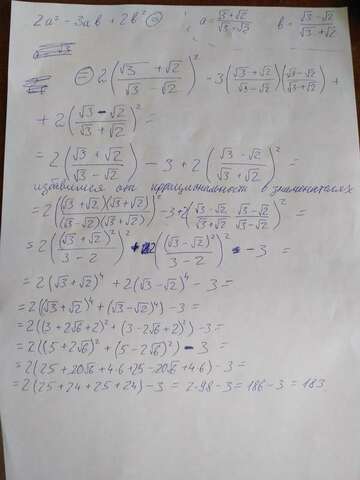 2a² - 3ab + 2b² = a = (√3 + √2)/(√3 - √2) b = (√3 - √2)/(√3 + √2)
= 2((√3 + √2)/(√3 - √2))² - 3((√3 + √2)/(√3 - √2))((√3 - √2)/(√3 + √2)) +
+ 2((√3 - √2)/(√3 + √2))² =
= 2((√3 + √2)/(√3 - √2))² - 3 + 2((√3 - √2)/(√3 + √2))² =
избавимся от иррациональности в знаменателях
= 2(((√3 + √2)(√3 + √2))/((√3 - √2)(√3 + √2)))² - 3 + 2((√3 - √2)/(√3 + √2) · (√3 - √2)/(√3 - √2))² =
= 2((√3 + √2)²/(3 - 2))² + 2((√3 - √2)²/(3 - 2))² - 3 =
= 2(√3 + √2)⁴ + 2(√3 - √2)⁴ - 3 =
= 2((√3 + √2)⁴ + (√3 - √2)⁴) - 3 =
= 2((3 + 2√6 + 2)² + (3 - 2√6 + 2)²) - 3 =
= 2((5 + 2√6)² + (5 - 2√6)²) - 3 =
= 2(25 + 20√6 + 4·6 + 25 - 20√6 + 4·6) - 3 =
= 2(25 + 24 + 25 + 24) - 3 = 2·98 - 3 = 186 - 3 = 183